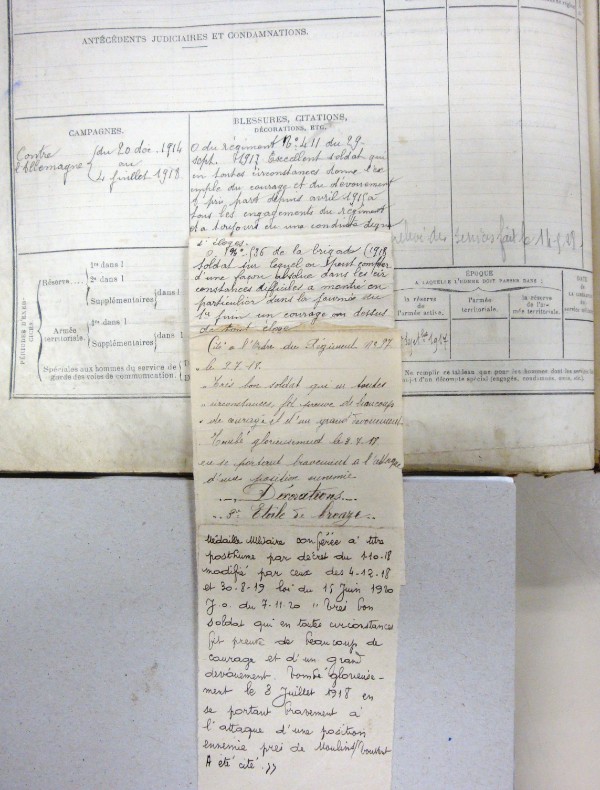 ANTÉCÉDENTS JUDICIAIRES ET CONDAMNATIONS.
CAMPAGNES.
Contre l'Allemagne
du 20 dec. 1914
au
4 juillet 1918
BLESSURES, CITATIONS,
DÉCORATIONS, ETC.
O du régiment No 411 du 29
sept. 1917 Excellent soldat qui
en toutes circonstances donne l'ex
emple du courage et du dévouement
pris part depuis avril 1915 à
tous les engagements du régiment
et a toujours eu une conduite digne
d'éloges.
136 de la brigade (1918
soldat sur lequel on peut compter
d'une façon absolue dans les cir
constances difficiles a montré en
particulier dans la journée du
1er juin un courage au dessus
de tout éloge
Cité à l'Ordre du Régiment no 97
le 9.7.18.
" Très bon soldat qui en toutes
" circonstances, fit preuve de beaucoup
" de courage et d'un grand dévouement
Tombé glorieusement le 3.7.18
en se portant bravement à l'attaque
d'une position ennemie
Décorations
Etoile de bronze
Médaille Militaire conférée à titre
posthume par décret du 1-10-18
modifié par ceux des 4-12-18
et 30-8-19 loi du 15 Juin 1920
J.O. du 7-11-20 " Très bon
soldat qui en toutes circonstances
fit preuve de beaucoup de
courage et d'un grand
dévouement. Tombé glorieuse-
ment le 3 Juillet 1918 en
se portant bravement à
l'attaque d'une position
ennemie près de Moulins/Touvent
A été cité. "
relevé des services fait le 14-9-28
PÉRIODES D'EXER-
CICES.
Réserve
1re dans l
2e dans l
Supplémentaires
dans l
Armée
territoriale.
1re dans l
Supplémentaires
dans l
Spéciale aux hommes du service de
garde des voies de communication.
ÉPOQUE
A LAQUELLE L'HOMME DOIT PASSER DANS :
la réserve
de
l'armée active.
l'armée
territoriale.
la réserve
de l'ar-
mée territoriale.
DATE
1917
Ne remplir ce tableau que pour les hommes dont les services